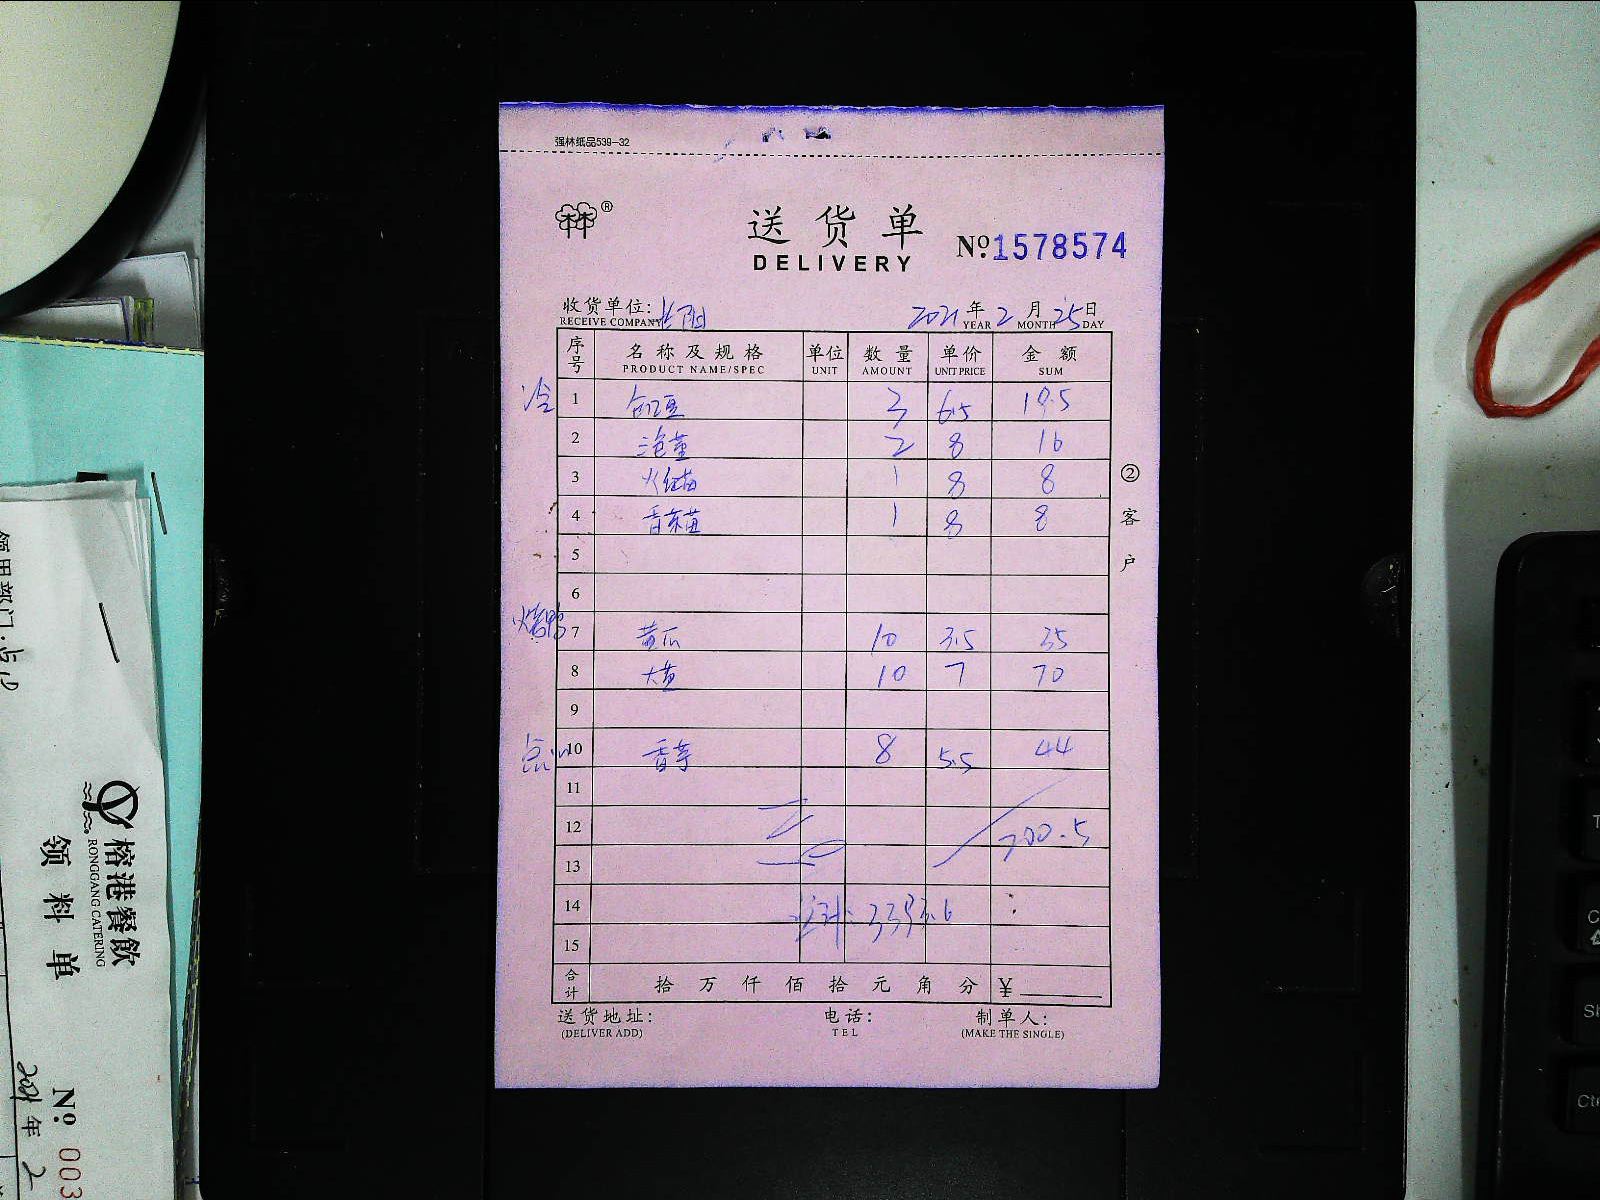 强林纸品539-32
送货单
DELIVERY
№:1578574
收货单位:
RECEIVE COMPANY
2021年2月25日
YEAR MONTH DAY
序号 名称及规格 单位 数量 单价 金额
PRODUCT NAME/SPEC UNIT AMOUNT UNIT PRICE SUM
冷 1 3 6.5 19.5
2 2 8 16
3 1 8 8
4 1 8 8
5
6
烧鸭 7 黄瓜 10 3.5 35
8 10 7 70
9
点心 10 香芋 8 5.5 44
11
12 200.5
13
14
15
合计 拾万仟佰拾元角分 ¥
送货地址: 电话: 制单人:
(DELIVER ADD) TEL (MAKE THE SINGLE)
②客户
榕港餐飲
RONGGANG CATERING
领料单
领用部门:
№ 003
2021年2